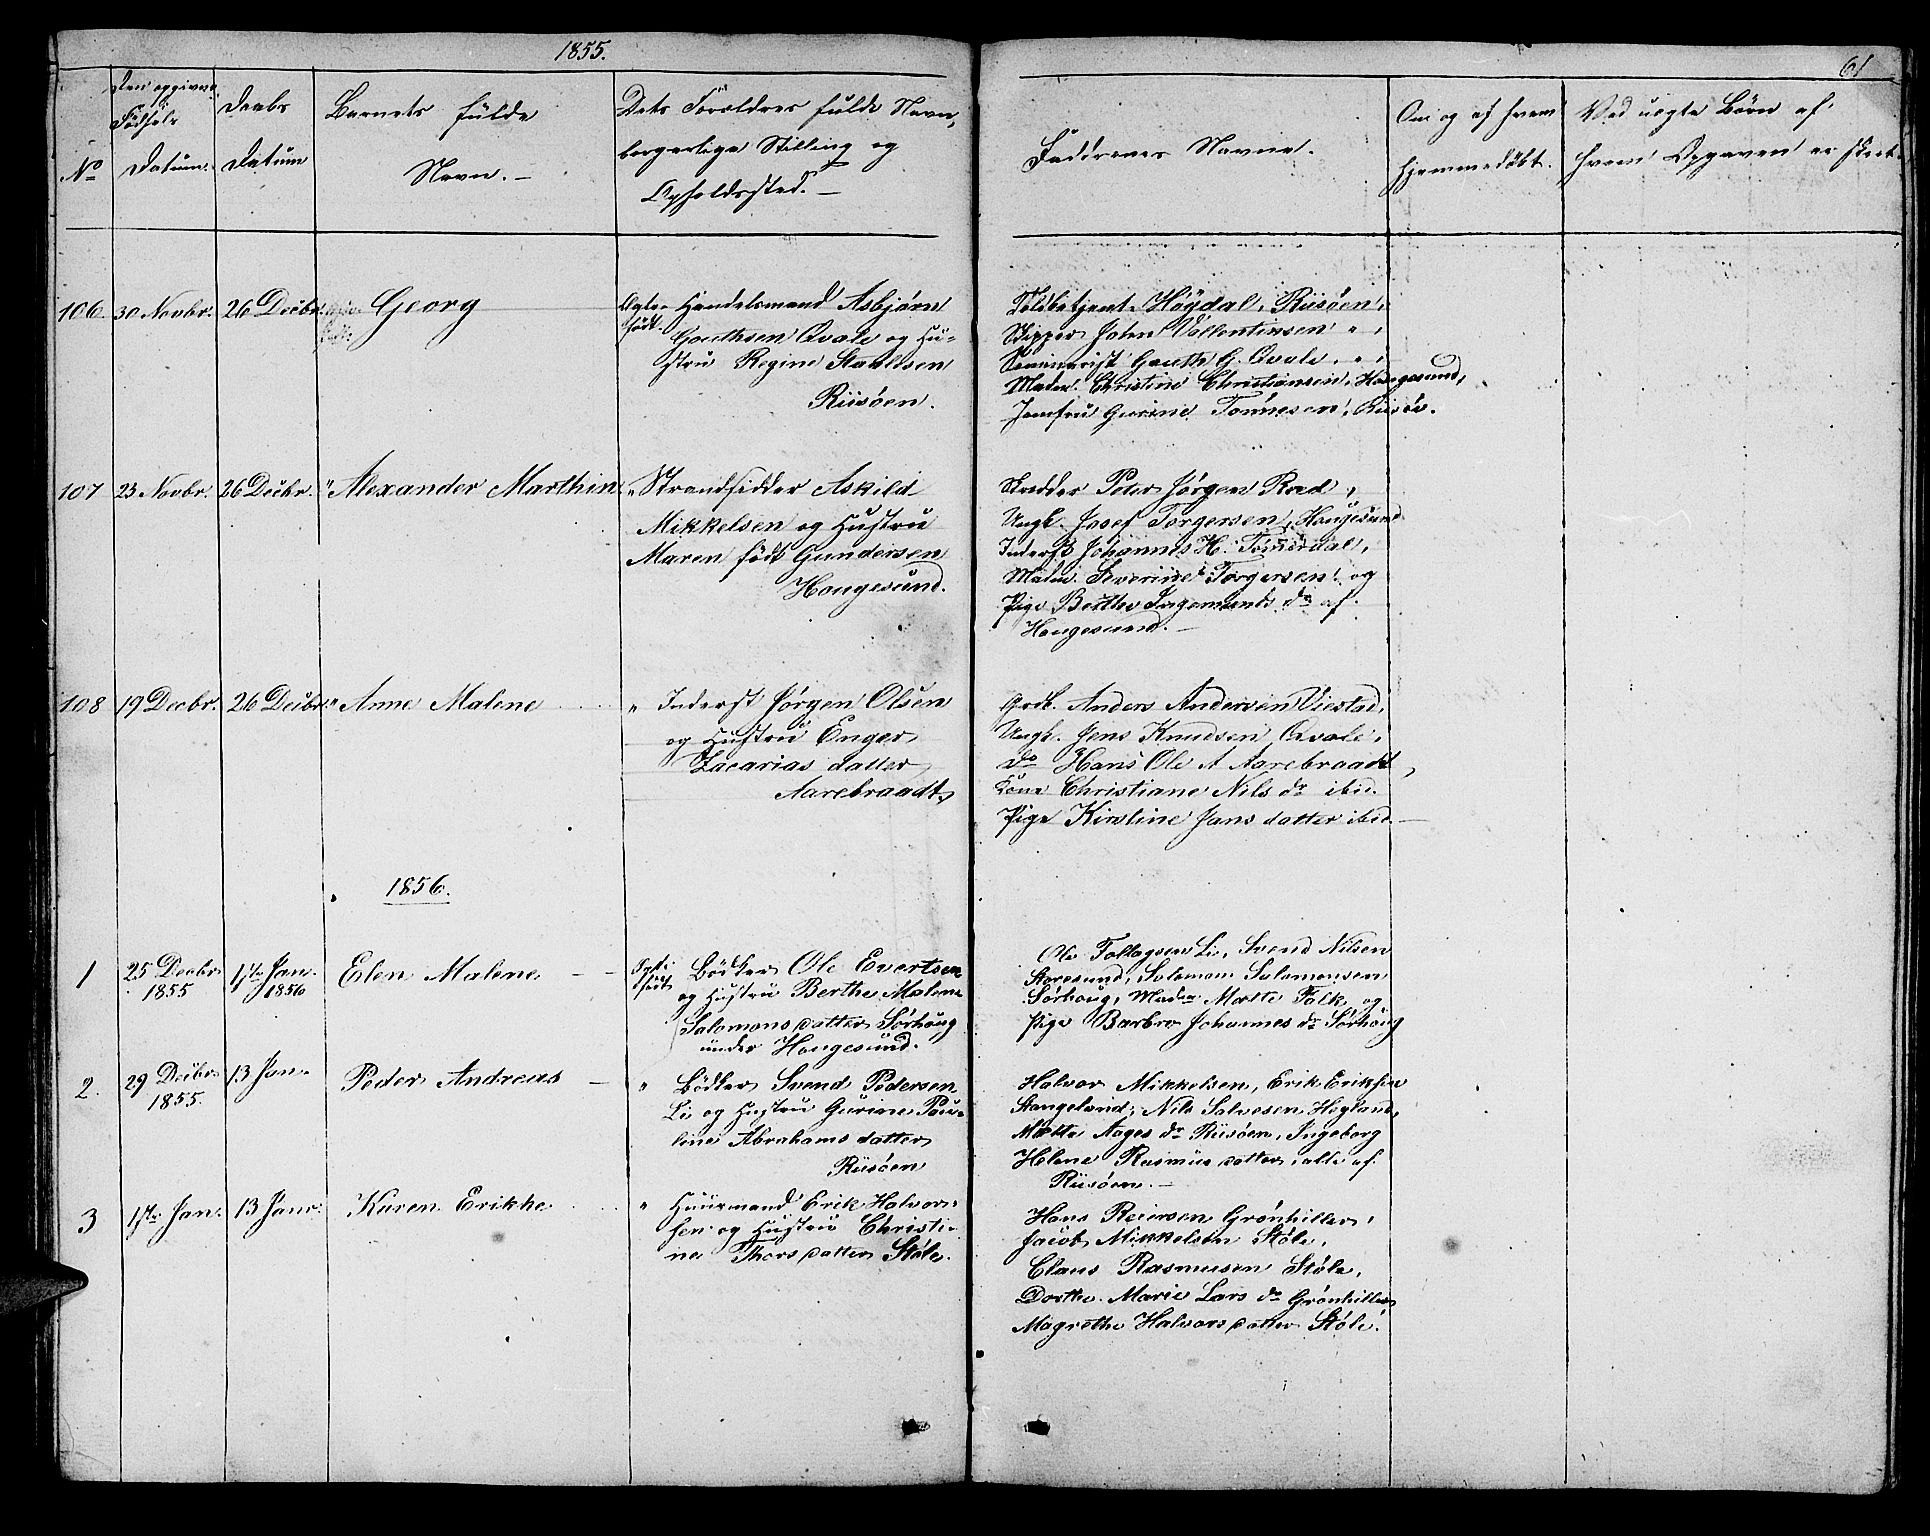 1855.
61
Den opgivne
Fødsels
Datum.
Daabs
Datum
Barnets fulde
Navn. -
Dets Forældres fulde Navn,
borgerlige Stilling og
Opholdssted. -
Faddrenes Navne.
Om og af hvem
hjemmedøbt.
Ved uægte Børn af
hvem Opgaven er skeet
No
106 30 Novbr. 26 Decbr. Georg
Ægte-
født.
Handelsmand Asbjørn
Gauthsen Qvale og Hu-
stru Regine
Riisøen.
Toldbetjent Høydal, Riisøen,
Skipper John Vallentinsen " ,
Seminarist Gauth G. Qvale, " ,
Mad. Christine Christiansen, Hougesund,
Jomfru Gurine Tønnesen, Riisøe.
107 23 Novbr. 26 Decbr. " Alexander Marthin
" Strandsidder Askild
Mikkelsen og Hustru
Maren født Gundersen
Hougesund.
Skredder Peter Jørgen Roed,
Ungk. Josef Torgersen, Hougesund
Inderst Johannes H.
Madm. Severine Torgersen, og
Pige Berthe Ingemunds dr af
Hougesund. -
108 19 Decbr. 26 Decbr. " Anne Malene
" Inderst Jørgen Olsen
og Hustru Enger
Zacarias datter
Aarebraadt,
Grdb. Anders Andersen Viestad,
Ungk. Jens Knudsen Qvale,
do Hans Ole A Aarebraadt,
Kone Christiane Nils dr ibid.
Pige Kirstine Jans datter ibid. -
1856.
1 25 Decbr 1ste Jan. Elen Malene -
1855 1856
Bødker Ole Evertsen
og Hustru Berthe Malene
Salomons datter Sørhoug
under Hougesund.
Ole Li, Svend Nilsen
Storesund, Salomon Salomonsen
Sørhoug, Madm Mætte Falk, og
Pige Barbro Johannes dr Sørhoug
2. 29 Decbr 13 Jan. Peder Andreas -
1855.
" Bødker Svend Pedersen
Li og Hustru Gurine Pau-
line Abrahams datter
Riisøen
Halvor Mikkelsen, Erik Eriksen
Stangeland, Nils Salvesen Hegland,
Mætte Aages dr Riisøen, Ingeborg
Helene Rasmus datter, alle af
Riisøen. -
3 1ste Jan. 13 Janr. Karen Erikke
" Huusmand Erik Halvor-
sen og Hustru Christi-
ne Thors datter Støle.
Hans Reiersen Grønhiller,
Jacob Mikkelsen Støle,
Claus Rasmusen Støle,
Dorthe Marie Lars dr Grønhiller
Magrethe Halvors datter Støle.